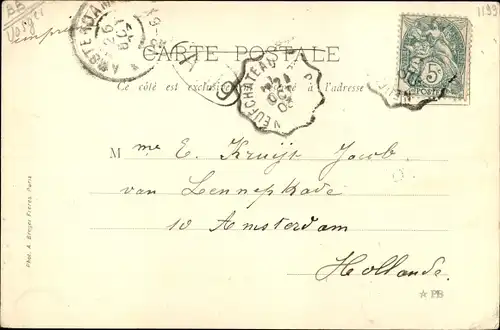 1193
Vosges
imprimé
AMSTERDAM
CARTE POSTALE
Ce côté est exclusivement réservé à l'adresse
NEUFCHATEAU
5c
POSTE
Mme E. Kruijt Jacob.
van Lennepkade
10 Amsterdam
Hollande.
Phot. A. Breger Frères, Paris
★ PB